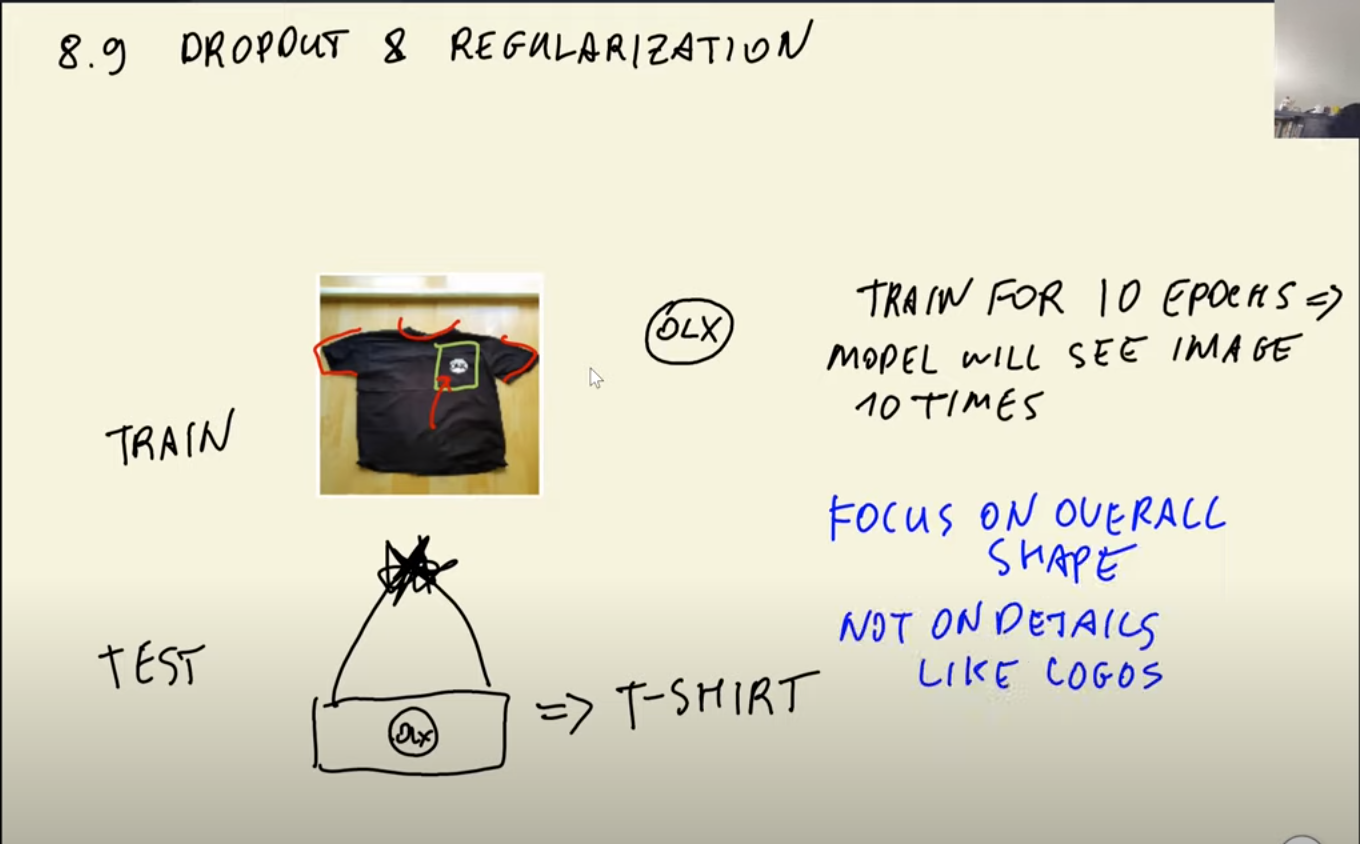 8.9 DROPOUT & REGULARIZATION
DLX
TRAIN FOR 10 EPOCHS =>
MODEL WILL SEE IMAGE
10 TIMES
TRAIN
FOCUS ON OVERALL
SHAPE
NOT ON DETAILS
LIKE LOGOS
TEST
DLX
=> T-SHIRT